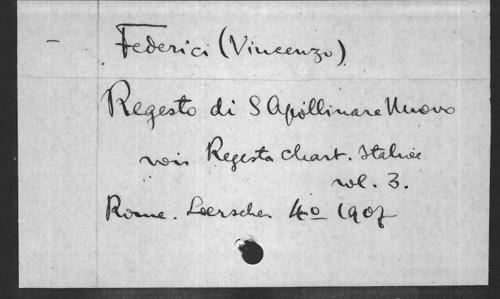 – Federici (Vincenzo)
Regesto di S Apollinare Nuovo
voir Regesta chart. Italiae
vol. 3.
Rome. Loescher 4o 1907